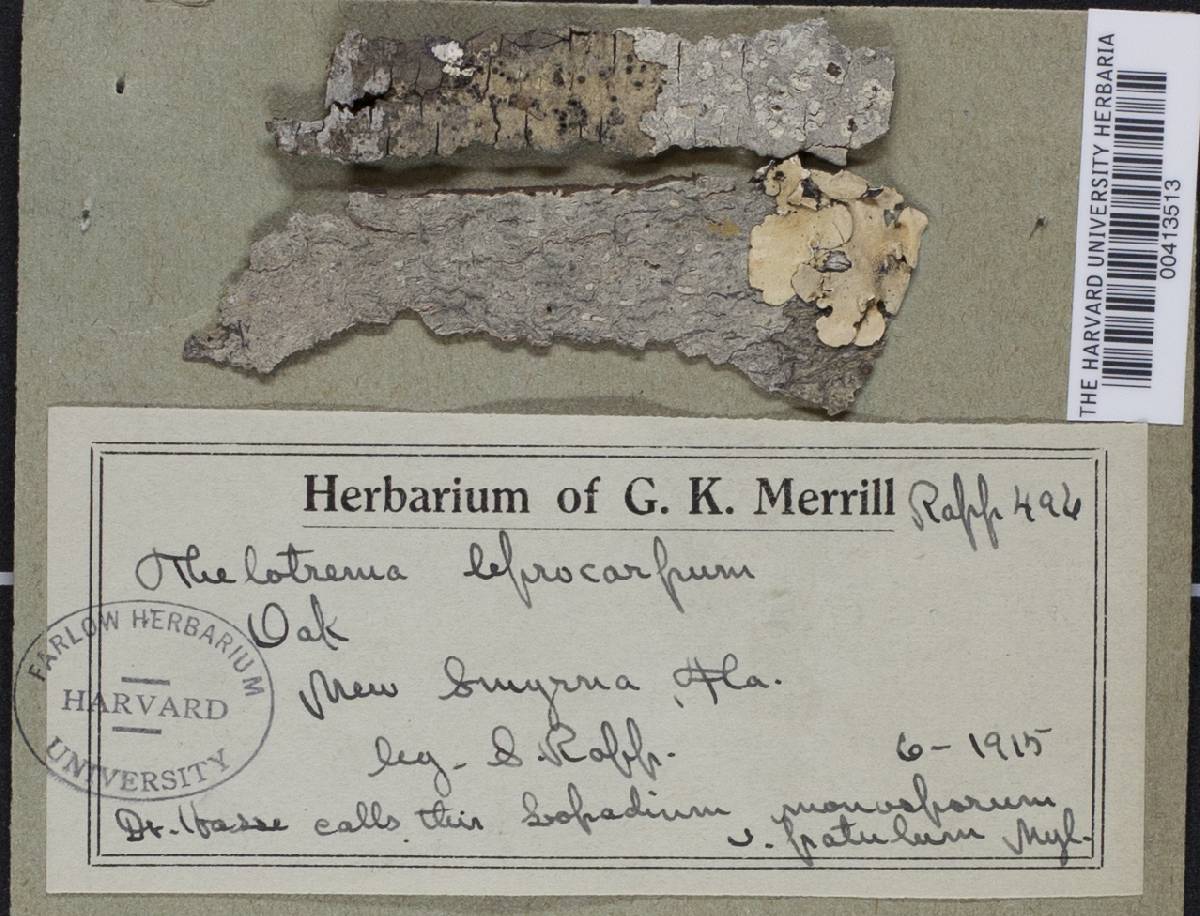 THE HARVARD UNIVERSITY HERBARIA
00413513
Herbarium of G. K. Merrill
Rapp 494
Thelotrema leprocarpum
Oak
New Smyrna Fla.
leg. S. Rapp.
6-1915
Dr. Hasse calls this Lopadium monosporum
v. patulum Nyl.
FARLOW HERBARIUM
HARVARD
UNIVERSITY